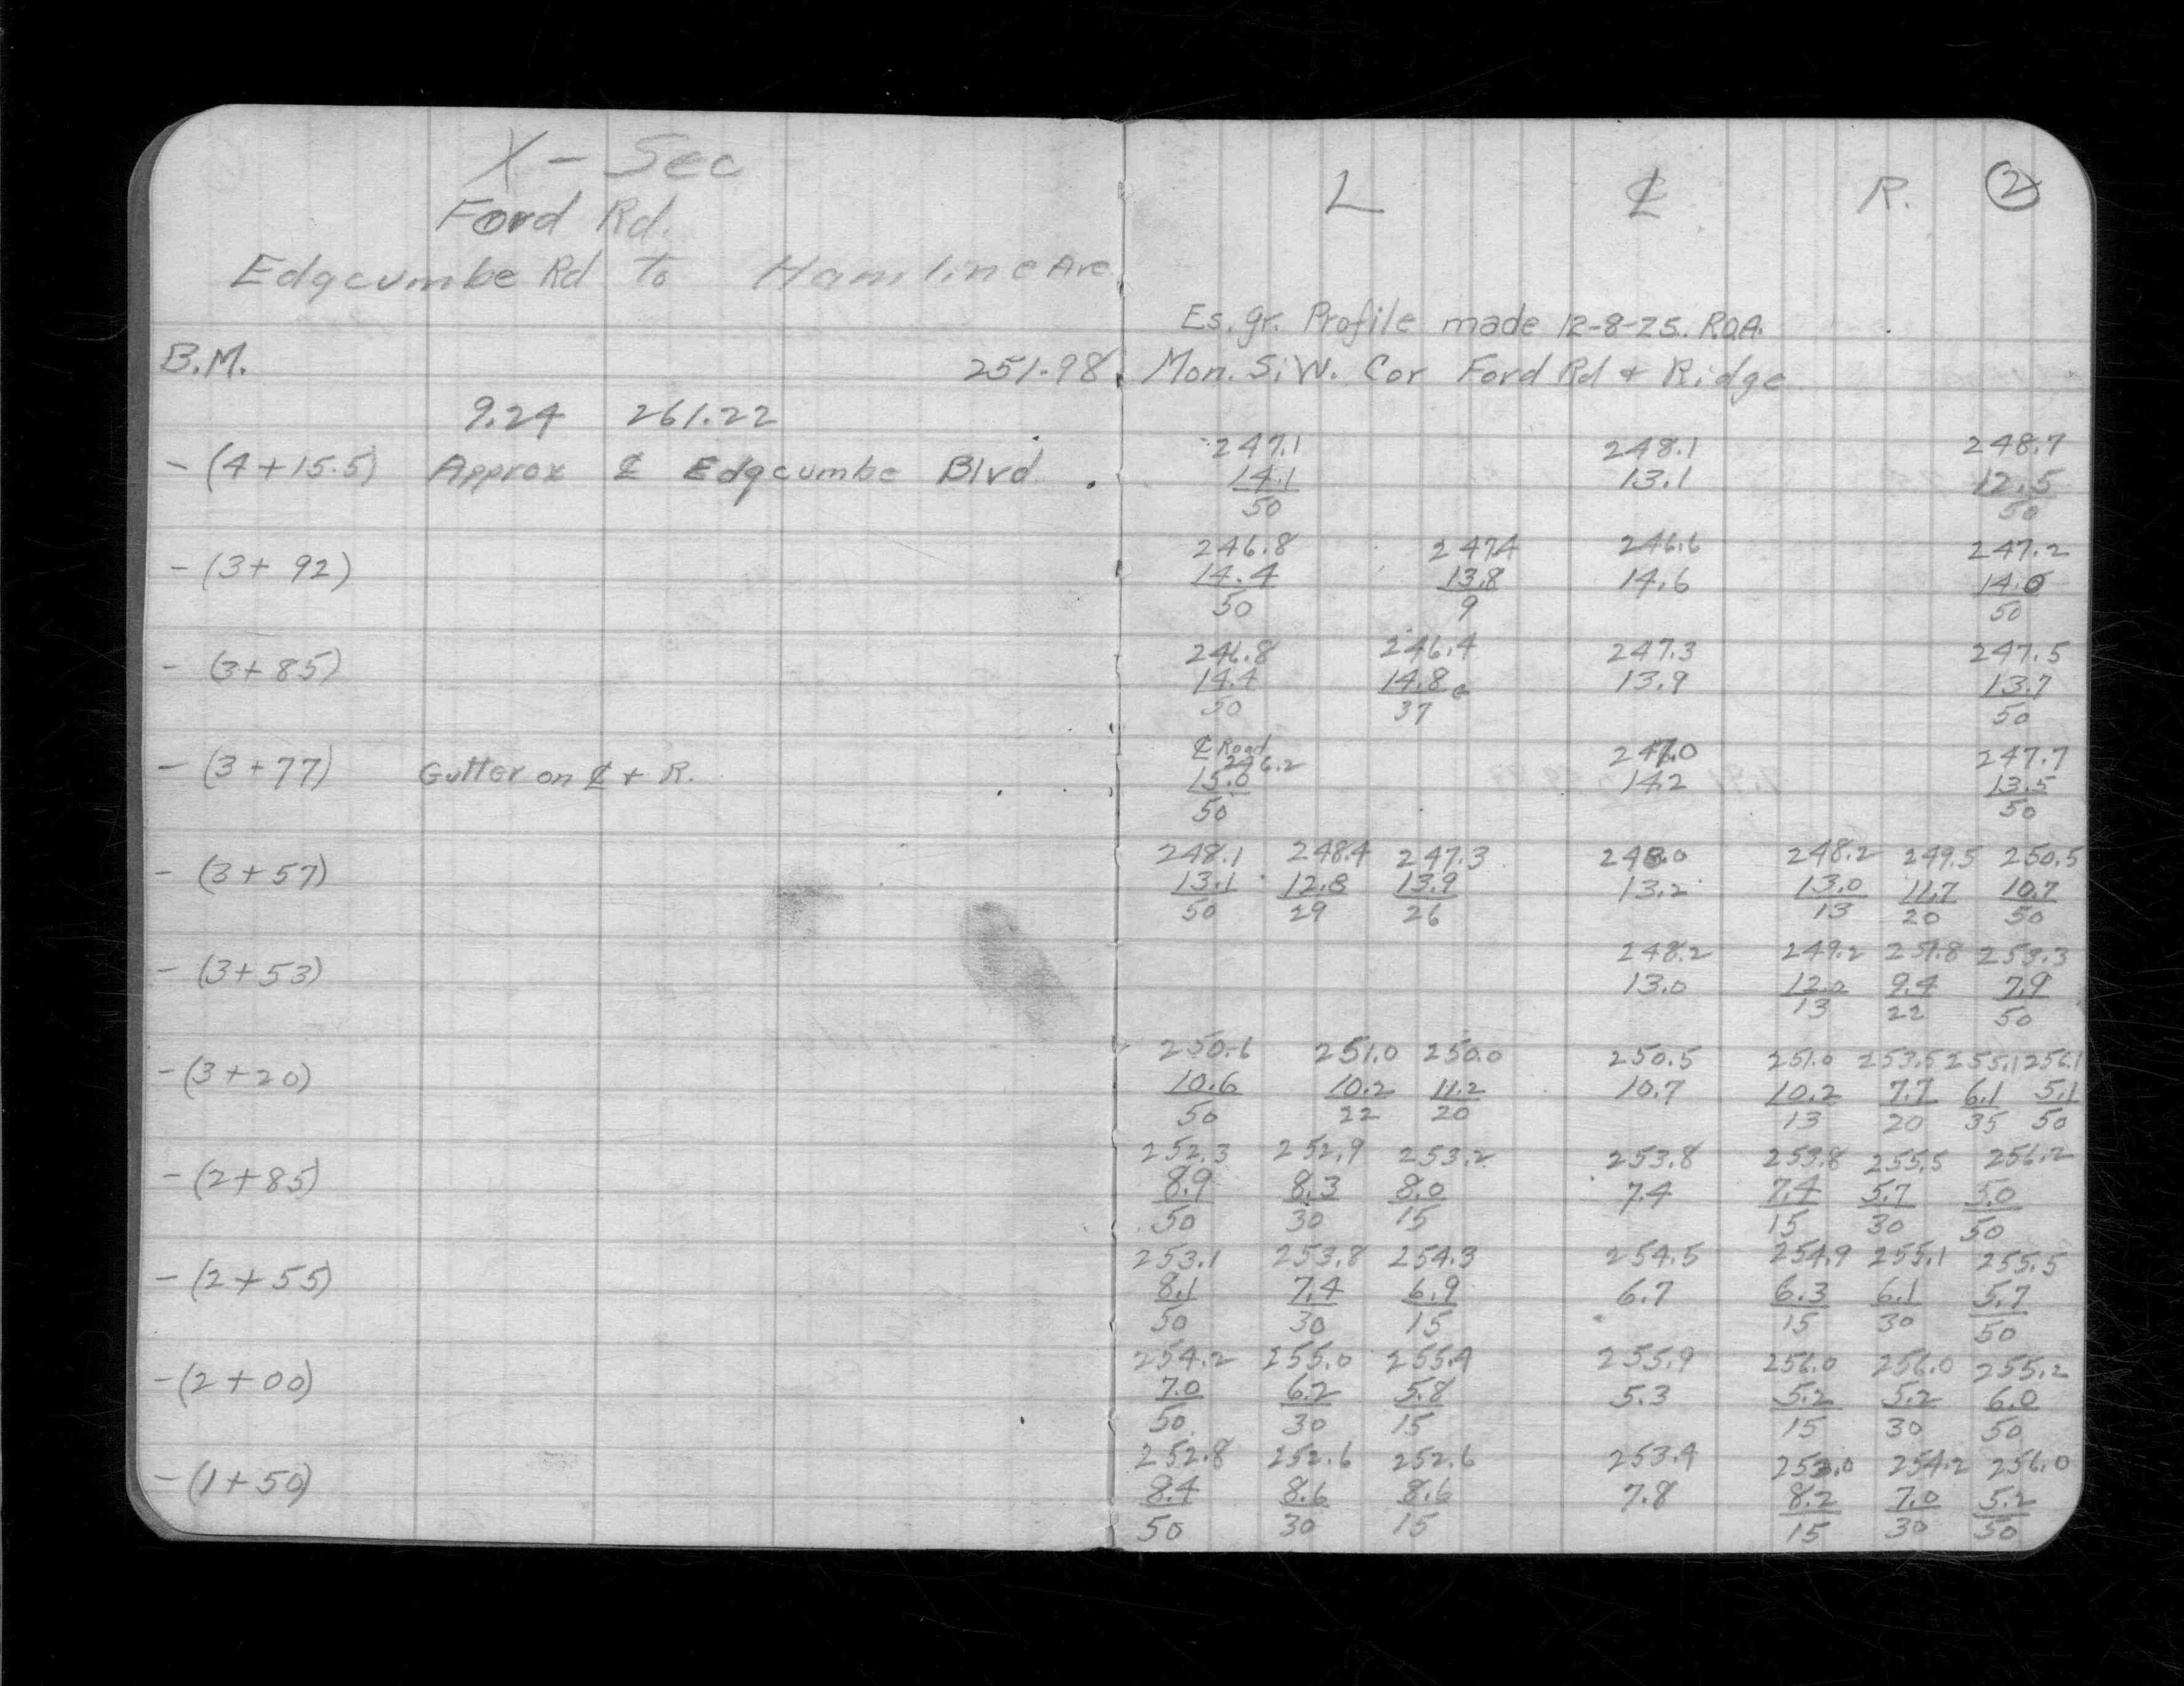 X - Sec
Ford Rd.
Edgcumbe Rd to Hamline Ave
B.M. 251.98
9.24 261.22
- (4+15.5) Approx ℄ Edgcumbe Blvd.
- (3+92)
- (3+85)
- (3+77) Gutter on ℄ + R.
- (3+57)
- (3+53)
- (3+20)
- (2+85)
- (2+55)
- (2+00)
- (1+50)
L ℄ R. 2
Es. gr. Profile made 12-8-25. R.O.A.
Mon. S.W. Cor Ford Rd + Ridge
247.1 248.1 248.7
14.1 13.1 12.5
50 50
246.8 247.4 246.6 247.2
14.4 13.8 14.6 14.0
50 9 50
246.8 246.4 247.3 247.5
14.4 14.8 c 13.9 13.7
50 37 50
℄ Road
246.2 247.0 247.7
15.0 14.2 13.5
50 50
248.1 248.4 247.3 248.0 248.2 249.5 250.5
13.1 12.8 13.9 13.2 13.0 11.7 10.7
50 29 26 13 20 50
248.2 249.2 251.8 253.3
13.0 12.0 9.4 7.9
13 22 50
250.6 251.0 250.0 250.5 251.0 253.5 255.1 256.1
10.6 10.2 11.2 10.7 10.2 7.7 6.1 5.1
50 22 20 13 20 35 50
252.3 252.9 253.2 253.8 253.8 255.5 256.2
8.9 8.3 8.0 7.4 7.4 5.7 5.0
50 30 15 15 30 50
253.1 253.8 254.3 254.5 254.9 255.1 255.5
8.1 7.4 6.9 6.7 6.3 6.1 5.7
50 30 15 15 30 50
254.2 255.0 255.4 255.9 256.0 256.0 255.2
7.0 6.2 5.8 5.3 5.2 5.2 6.0
50 30 15 15 30 50
252.8 252.6 252.6 253.4 253.0 254.2 256.0
8.4 8.6 8.6 7.8 8.2 7.0 5.2
50 30 15 15 30 50